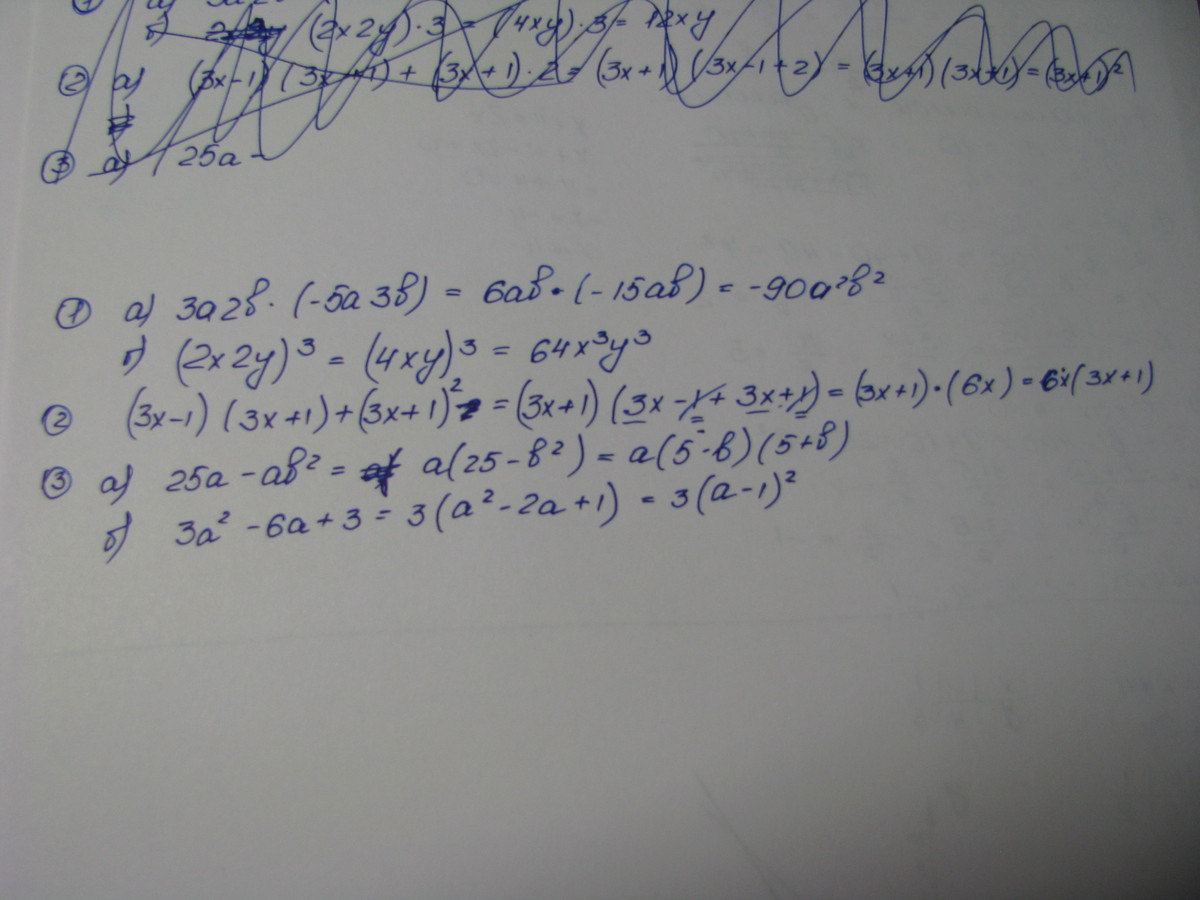 ① а)
б) (2x2y)·3 = (4xy)·3 = 12xy
② а) (3x-1)(3x+1) + (3x+1)·2 = (3x+1)(3x-1+2) = (3x+1)(3x+1) = (3x+1)²
③ а) 25a -
① а) 3a2b·(-5a3b) = 6ab·(-15ab) = -90a²b²
б) (2x2y)³ = (4xy)³ = 64x³y³
② (3x-1)(3x+1)+(3x+1)² = (3x+1)(3x-1+3x+1) = (3x+1)·(6x) = 6x(3x+1)
③ а) 25a-ab² = a(25-b²) = a(5-b)(5+b)
б) 3a²-6a+3 = 3(a²-2a+1) = 3(a-1)²